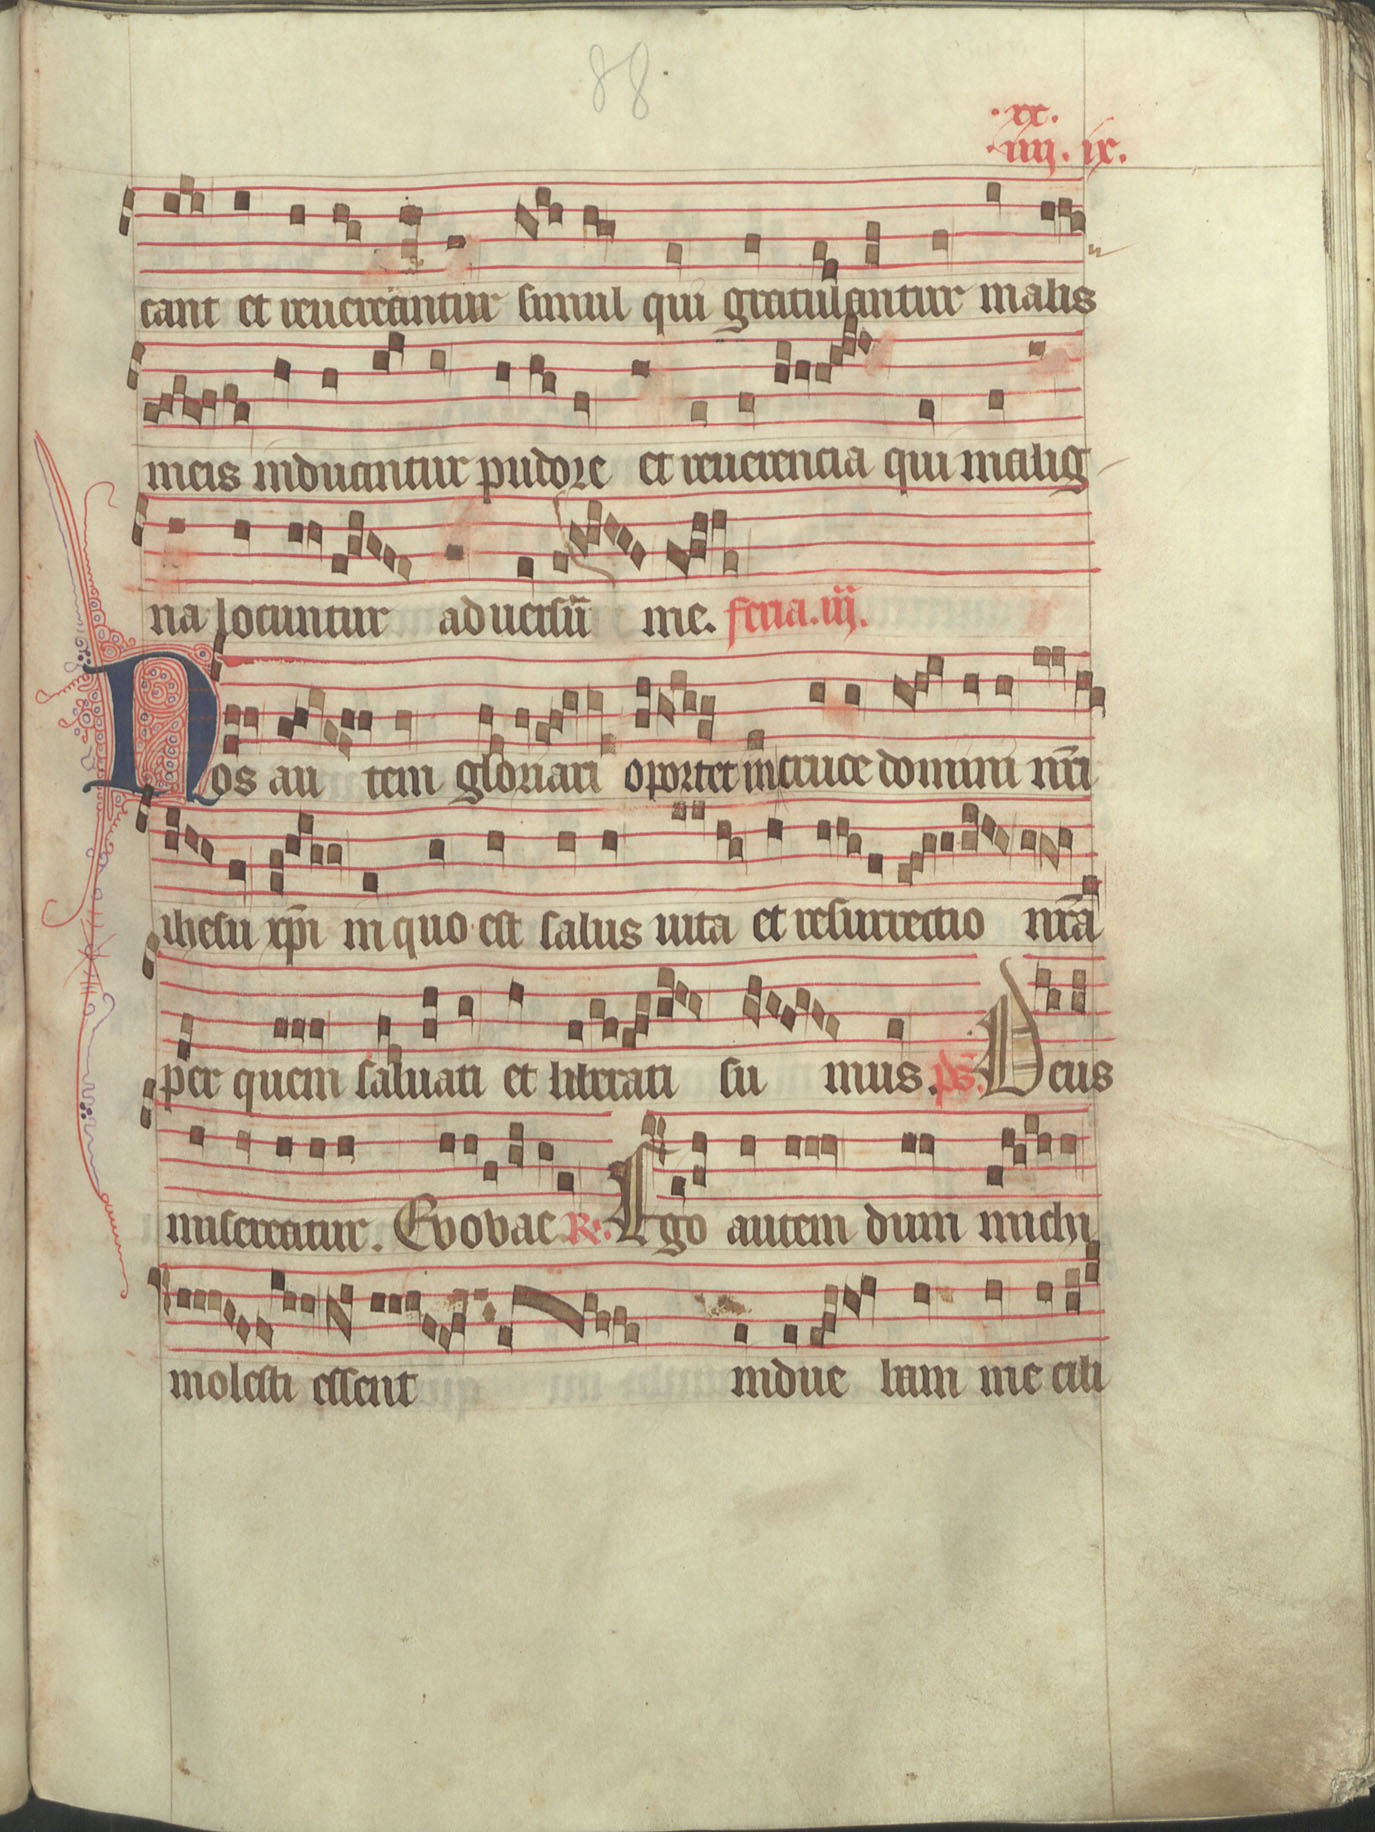 88
.xx.
.iiij. ix.
cant et reuereantur simul qui gratulantur malis
meis induantur pudore et reuerencia qui malig
na locuntur aduersū me. feria .iij.
Nos autem gloriari oportet in cruce domini nr̄i
ihesu xp̄i in quo est salus uita et resurrectio nr̄a
per quem saluati et liberati sumus. ps. Deus
misereatur. Evovae R. Ego autem dum michi
molesti essent induebam me cili